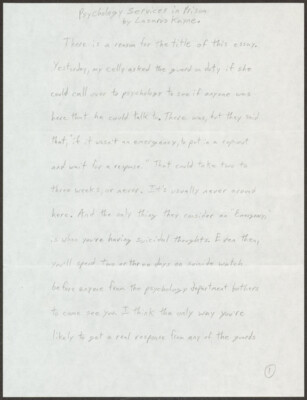 Psychology Services in Prison
by
There is a reason for the title of this essay.
Yesterday, my celly asked the guard on duty if she
could call over to psychology to see if anyone was
here that he could talk to. There was, but they said
that, "if it wasn't an emergency, to put in a copout
and wait for a response." That could take two to
three weeks, or never. It's usually never around
here. And the only thing they consider an "emergency"
is when you're having suicidal thoughts. Even then,
you'll spend two or three days on suicide watch
before anyone from the psychology department bothers
to come see you. I think the only way you're
likely to get a real response from any of the guards
1